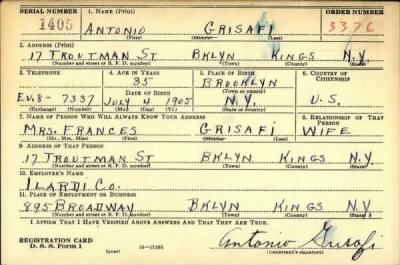 SERIAL NUMBER
1405
1. NAME (Print)
ANTONIO GRISAFI
ORDER NUMBER
3376
2. ADDRESS (Print)
17 TROUTMAN ST BKLYN KINGS N.Y.
(Number and street or R. F. D. number) (Town) (County) (State)
3. TELEPHONE
4. AGE IN YEARS
35
5. PLACE OF BIRTH
BROOKLYN
(Town or county)
6. COUNTRY OF CITIZENSHIP
DATE OF BIRTH
EV. 8- 7337 JULY 4 1905 N.Y. U.S.
(Exchange) (Number) (Mo.) (Day) (Yr.) (State or country)
7. NAME OF PERSON WHO WILL ALWAYS KNOW YOUR ADDRESS
8. RELATIONSHIP OF THAT PERSON
MRS. FRANCES GRISAFI WIFE
(Mr., Mrs., Miss) (First) (Middle) (Last)
9. ADDRESS OF THAT PERSON
17 TROUTMAN ST BKLYN KINGS N.Y.
(Number and street or R. F. D. number) (Town) (County) (State)
10. EMPLOYER'S NAME
ILARDI CO.
11. PLACE OF EMPLOYMENT OR BUSINESS
895 BROADWAY BKLYN KINGS NY
(Number and street or R. F. D. number) (Town) (County) (State)
I AFFIRM THAT I HAVE VERIFIED ABOVE ANSWERS AND THAT THEY ARE TRUE.
REGISTRATION CARD
D. S. S. Form 1
(over)
Antonio Grisafi
(Registrant's signature)